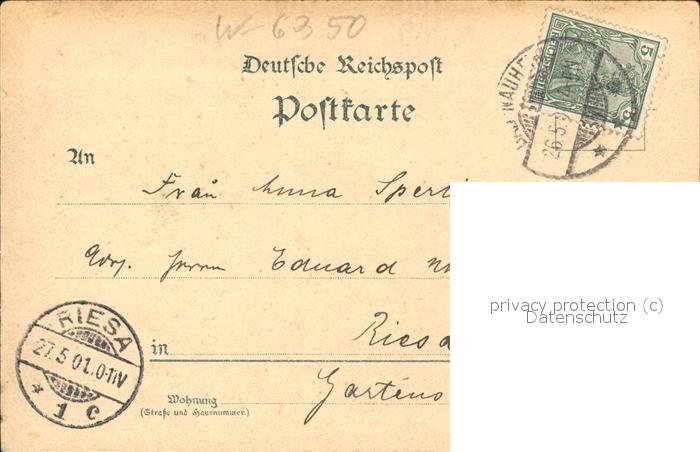 W-6350
Deutsche Reichspost
Postkarte
BAD NAUHE
26.5
5
An
Frau Anna Sperl
Adr. Herrn Eduard
in Riesa
Garten
Wohnung
(Straße und Hausnummer)
RIESA
27.5.01.0-1V
* 1 c
privacy protection (c)
Datenschutz